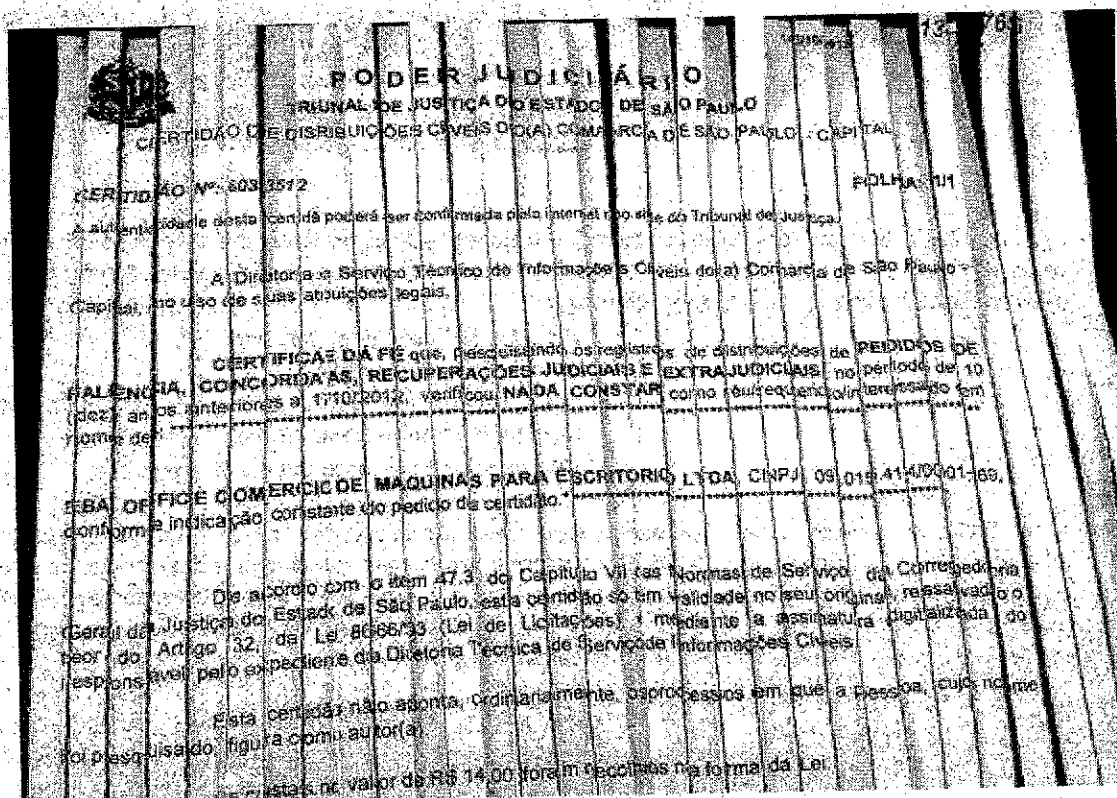 PODER JUDICIÁRIO
TRIUNAL DE JUSTIÇA DO ESTADO DE SÃO PAULO
CERTIDÃO DE DISRIBUIÇÕES CÍVEIS DO(A) COMARCA DE SÃO PAULO - CAPITAL
CERTIDÃO Nº: 6033512
FOLHA: 1/1
A autenticidade desta certidã poderá ser confirmada pela internet no site do Tribunal de Justiça.
A Diretoria Serviço Técnico de Informações Cíveis do(a) Comarca de São Paulo -
Capital, no uso de suas atribuições legais,
CERTIFICA E DÁ FÉ que, pesquisando os registros de distribuições de PEDIDOS DE
FALÊNCIA, CONCORDATAS, RECUPERAÇÕES JUDICIAIS E EXTRAJUDICIAIS, no período de 10
(dez) anos anteriores a 17/10/2012, verificou NADA CONSTAR como réu/requerido/interessado em
nome de:
EBA OFFICE COMERCIO DE MAQUINAS PARA ESCRITORIO LTDA, CNPJ: 09.015.414/0001-69,
conforme indicação constante do pedido de certidão.
De acordo com o item 47.3, do Capítulo VII das Normas de Serviço da Corregedoria
Geral da Justiça do Estado de São Paulo, esta certidão só tem validade no seu original, ressalvado o
teor do Artigo 32, da Lei 8666/93 (Lei de Licitações) mediante a assinatura digitalizada do
responsável pelo expediente da Diretoria Técnica de Serviço de Informações Cíveis.
Esta certidão não aponta, ordinariamente, os processos em que a pessoa, cujo nome
foi pesquisado, figura como autor(a).
custas no valor de R$ 14,00 foram recolhidos na forma da Lei